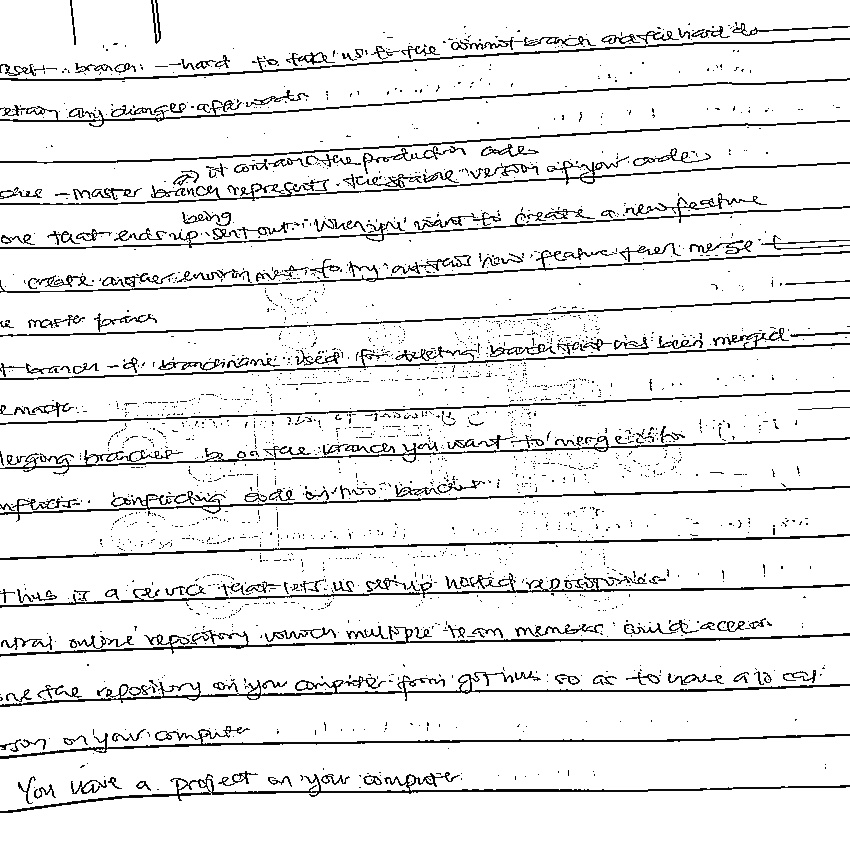 reset branch --hard to take us to the commit branch and the hard do
retain any changes afterwards
it contains the production code
master branch represents the stable version of your code
being
one that ends up sent out. When you want to create a new feature
create another environment to try out this new feature then merge
master branch
branch -d branchname used for deleting branch that has been merged
master
Merging branches be on the branch you want to merge
conflicts conflicting code on two branches
is a service that lets us setup hosted repositories
online repository which multiple team members could access
the repository on your computer from github so as to have a
on your computer
You have a project on your computer